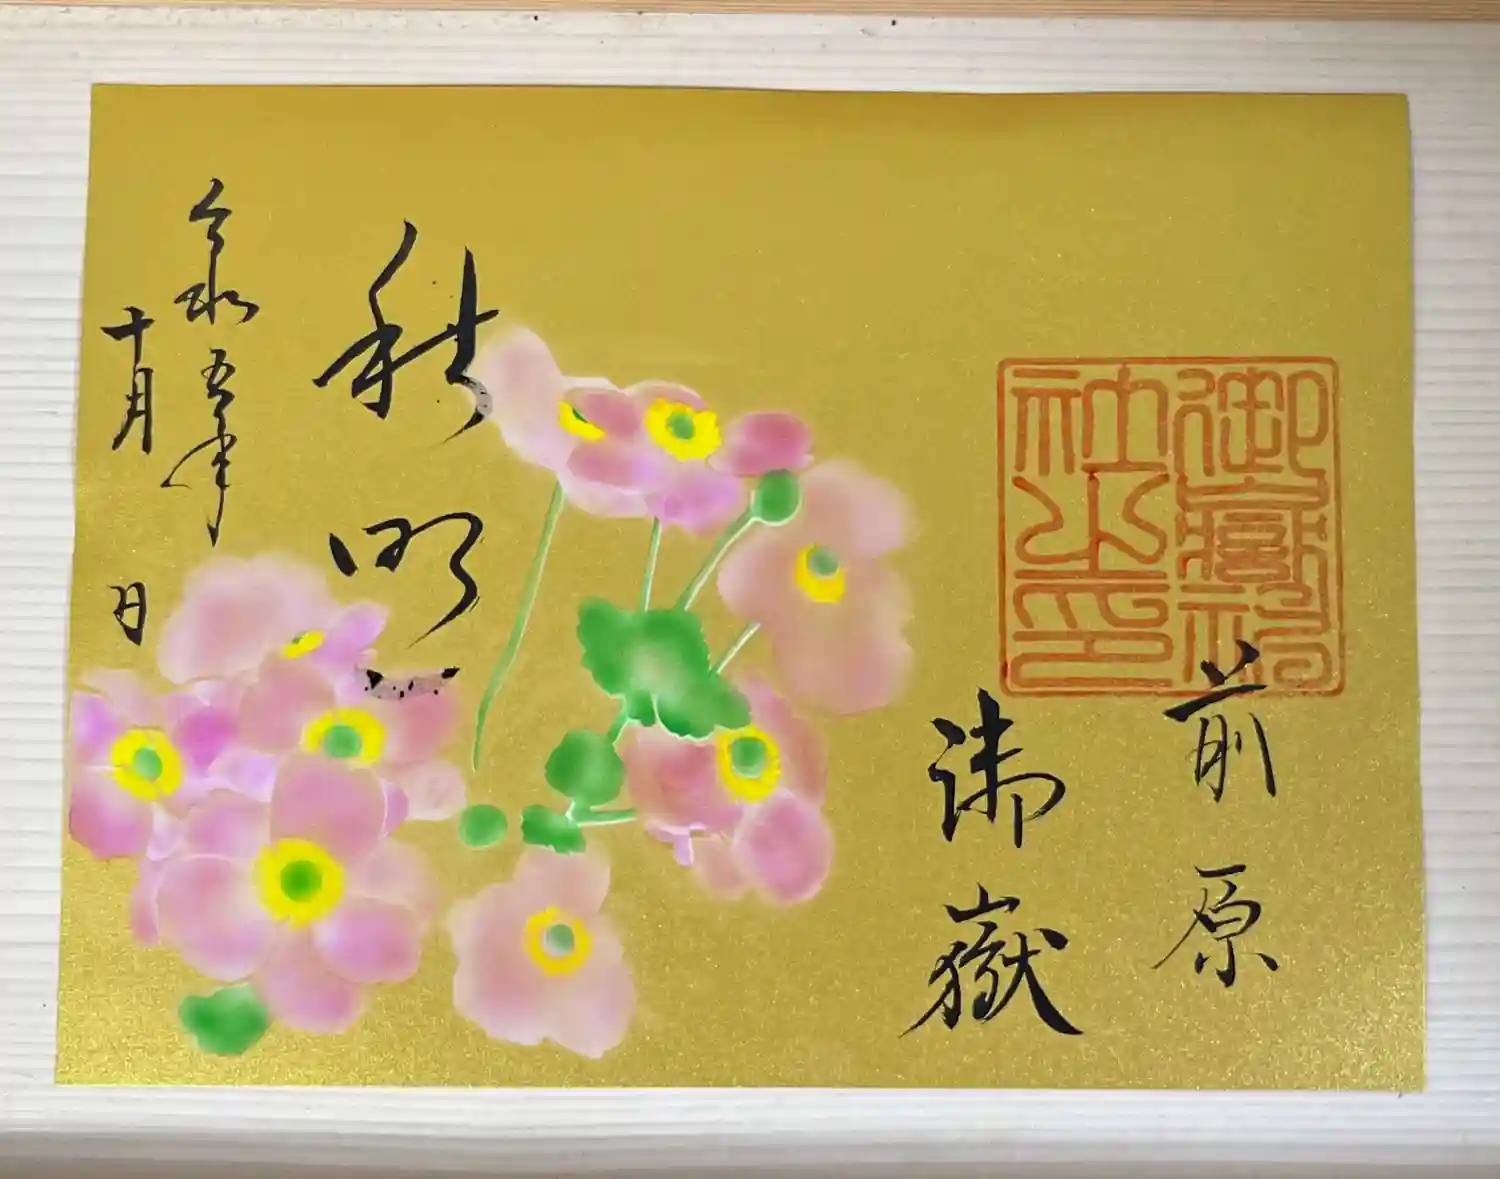 前原
御嶽
御嶽神社之印
秋明
令和五年
十月
日